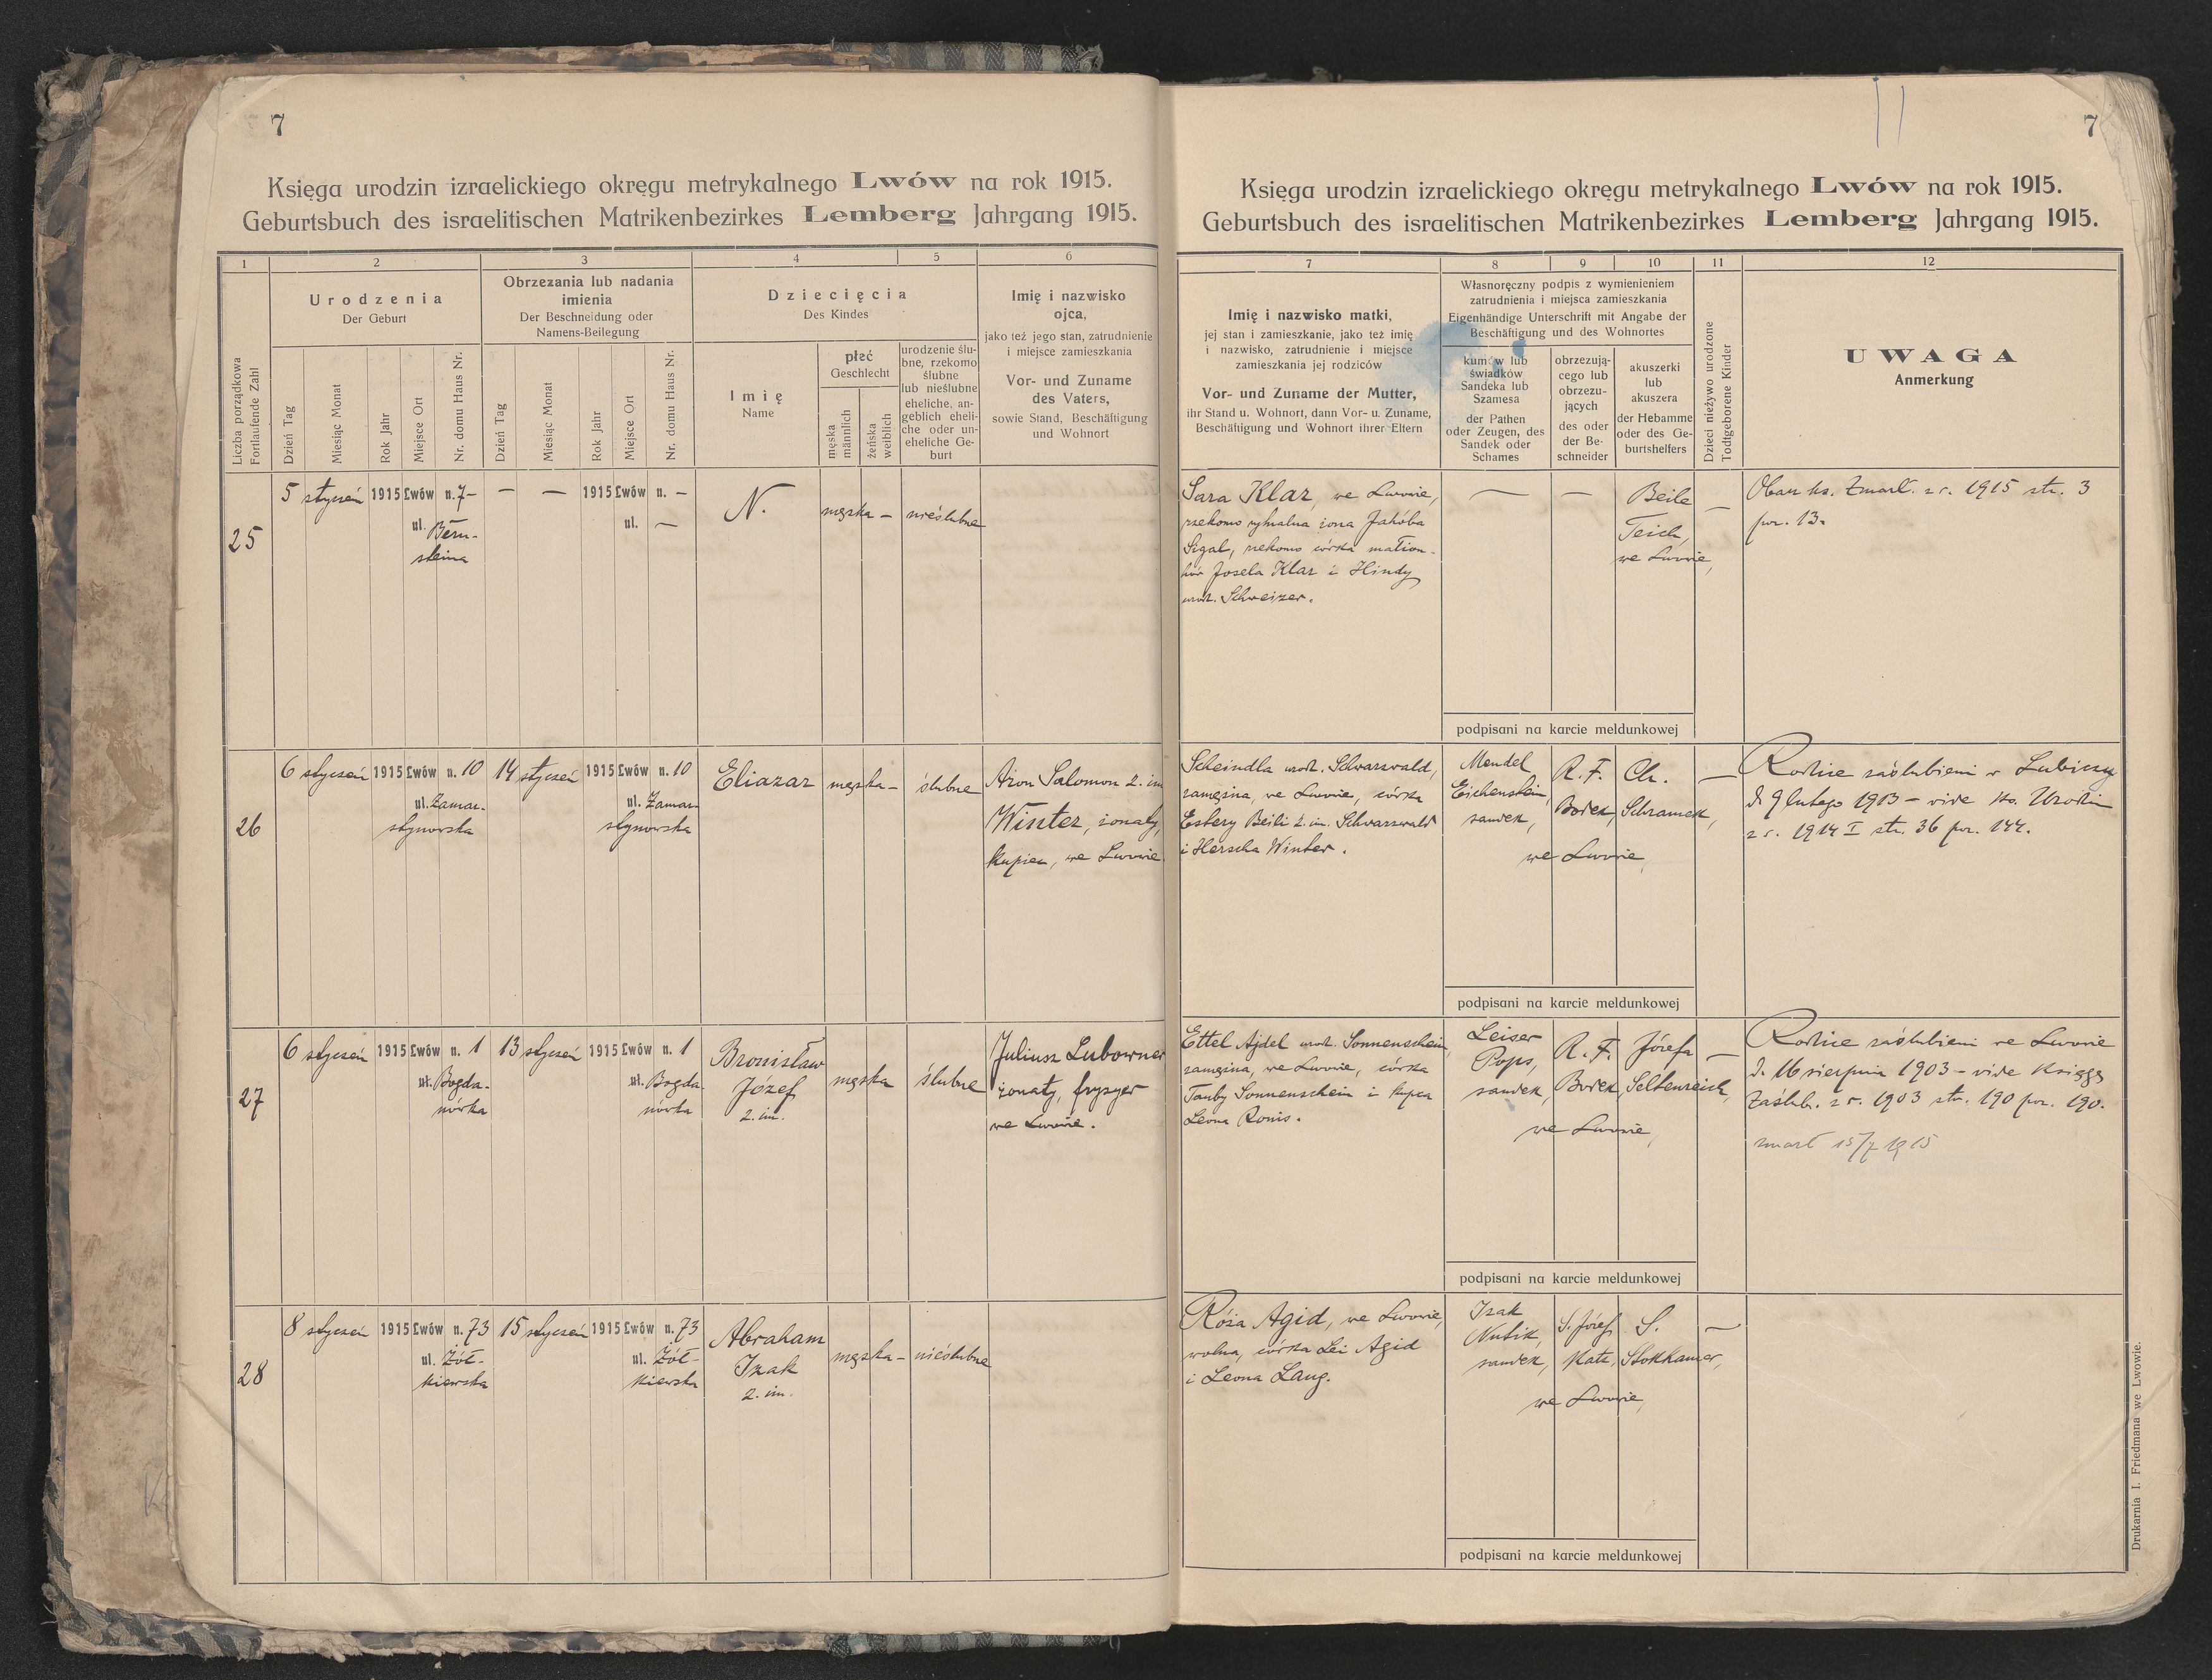 7
Księga urodzin izraelickiego okręgu metrykalnego Lwów na rok 1915.
Geburtsbuch des israelitischen Matrikenbezirkes Lemberg Jahrgang 1915.
1
2
3
4
5
6
Liczba porządkowa
Fortlaufende Zahl
Urodzenia
Der Geburt
Dzień Tag
Miesiąc Monat
Rok Jahr
Miejsce Ort
Nr. domu Haus Nr.
Obrzezania lub nadania
imienia
Der Beschneidung oder
Namens-Beilegung
Dzień Tag
Miesiąc Monat
Rok Jahr
Miejsce Ort
Nr. domu Haus Nr.
Dziecięcia
Des Kindes
Imię
Name
płeć
Geschlecht
męska
männlich
żeńska
weiblich
urodzenie ślu-
bne, rzekomo
ślubne
lub nieślubne
eheliche, an-
geblich eheli-
che oder un-
eheliche Ge-
burt
Imię i nazwisko
ojca,
jako też jego stan, zatrudnienie
i miejsce zamieszkania
Vor- und Zuname
des Vaters,
sowie Stand, Beschäftigung
und Wohnort
25
5 styczeń 1915 Lwów n. 7 –
ul. Bern-
steina
— — 1915 Lwów n. –
ul. —
N.
męska –
nieślubne
26
6 styczeń 1915 Lwów n. 10
ul. Zamar-
stynowska
14 styczeń 1915 Lwów n. 10
ul. Zamar-
stynowska
Eliazar
męska –
ślubne
Aron Salomon 2. im
Winter, żonaty,
kupiec, we Lwowie
27
6 styczeń 1915 Lwów n. 1
ul. Bogda-
nówka
13 styczeń 1915 Lwów n. 1
ul. Bogda
nówka
Bronisław
Józef
2. im.
męska
ślubne
Juliusz Lubowner
żonaty, fryzyer
we Lwowie.
28
8 styczeń 1915 Lwów n. 73
ul. Żół-
kiewska
15 styczeń 1915 Lwów n. 73
ul. Żół-
kiewska
Abraham
Izak
2. im.
męska –
nieślubne
7
Księga urodzin izraelickiego okręgu metrykalnego Lwów na rok 1915.
Geburtsbuch des israelitischen Matrikenbezirkes Lemberg Jahrgang 1915.
7
8
9
10
11
12
Imię i nazwisko matki,
jej stan i zamieszkanie, jako też imię
i nazwisko, zatrudnienie i miejsce
zamieszkania jej rodziców
Vor- und Zuname der Mutter,
ihr Stand u. Wohnort, dann Vor- u. Zuname,
Beschäftigung und Wohnort ihrer Eltern
Własnoręczny podpis z wymienieniem
zatrudnienia i miejsca zamieszkania
Eigenhändige Unterschrift mit Angabe der
Beschäftigung und des Wohnortes
kumów lub
świadków
Sandeka lub
Szamesa
der Pathen
oder Zeugen, des
Sandek oder
Schames
obrzezują-
cego lub
obrzezu-
jących
des oder
der Be-
schneider
akuszerki
lub
akuszera
der Hebamme
oder des Ge-
burtshelfers
Dzieci nieżywo urodzone
Todtgeborene Kinder
UWAGA
Anmerkung
Sara Klar, we Lwowie,
rzekomo rytualna żona Jakóba
Sigal, rzekomo córka małżon-
ków Josela Klar i Hindy
urodz. Schweizer.
— —
Beile
Teich,
we Lwowie,
—
Obacz ks. Zmarł. z r. 1915 str. 3
poz. 13.
podpisani na karcie meldunkowej
Scheindla urodz. Schwarzwald,
zamężna, we Lwowie, córka
Estery Beili 2. im. Schwarzwald
i Herscha Winter.
Mendel
Eichenstein,
sandek,
R. F.
Bodek,
Ch.
Schramek,
we Lwowie,
—
Rodzice zaślubieni w Lubiczy
d. 9 lutego 1913 – vide ks. Urodzin
z r. 1914 I str. 36 poz. 144.
podpisani na karcie meldunkowej
Ettel Ajdel urodz. Sonnenschein,
zamężna, we Lwowie, córka
Tauby Sonnenschein i kupca
Leona Ronis.
Leiser
Pops,
sandek,
R. F.
Bodek,
Józefa
Seltenreich,
we Lwowie,
—
Rodzice zaślubieni we Lwowie
d. 16 sierpnia 1903 – vide Księgę
Zaślub. z r. 1903 str. 190 poz. 190.
zmarł 15/7 1915
podpisani na karcie meldunkowej
Róża Agid, we Lwowie,
wolna, córka Lei Agid
i Leona Lang.
Izak
Nubik,
sandek,
S. Józef
Katz,
S.
Stokhamer,
we Lwowie,
—
podpisani na karcie meldunkowej
Drukarnia I. Friedmana we Lwowie.